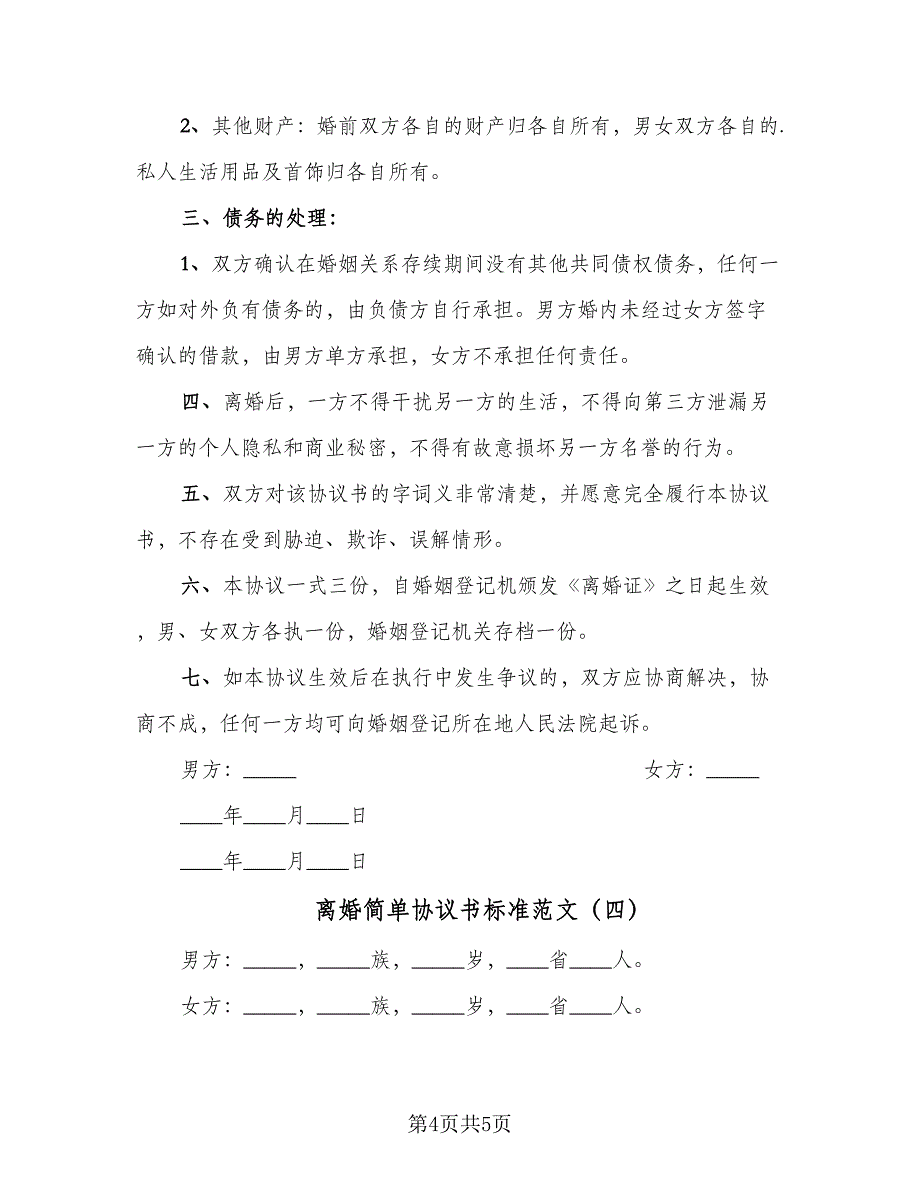 2、其他财产：婚前双方各自的财产归各自所有，男女双方各自的.
私人生活用品及首饰归各自所有。
三、债务的处理：
1、双方确认在婚姻关系存续期间没有其他共同债权债务，任何一
方如对外负有债务的，由负债方自行承担。男方婚内未经过女方签字
确认的借款，由男方单方承担，女方不承担任何责任。
四、离婚后，一方不得干扰另一方的生活，不得向第三方泄漏另
一方的个人隐私和商业秘密，不得有故意损坏另一方名誉的行为。
五、双方对该协议书的字词义非常清楚，并愿意完全履行本协议
书，不存在受到胁迫、欺诈、误解情形。
六、本协议一式三份，自婚姻登记机颁发《离婚证》之日起生效
，男、女双方各执一份，婚姻登记机关存档一份。
七、如本协议生效后在执行中发生争议的，双方应协商解决，协
商不成，任何一方均可向婚姻登记所在地人民法院起诉。
男方：_____ 女方：_____
____年____月____日
____年____月____日
离婚简单协议书标准范文（四）
男方：_____，_____族，_____岁，____省____人。
女方：_____，_____族，_____岁，____省____人。
第4页共5页